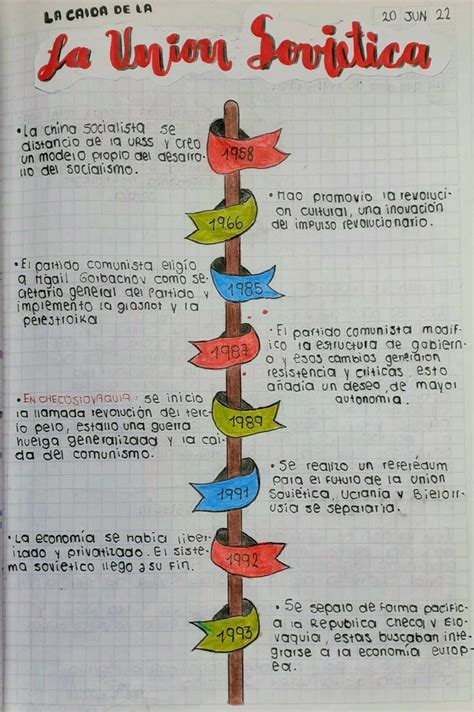 LA CAIDA DE LA
20 JUN 22
La Union Sovietica
• La china socialista se
distancio de la URSS y creo
un modelo propio del desarro-
llo del socialismo.
1958
• Mao promovio la revoluci-
on cultural, una inovación
del impulso revolucionario.
1966
• El partido comunista eligio
a Mijail Gorbachov como se-
cretario general del Partido y
implemento la glasnot y la
perestroika
1985
• El partido comunista modif-
ico la estructura de gobiern-
o y esos cambios generaron
resistencia y criticas. esto
añadia un deseo de mayor
autonomia.
1987
• EN CHECOSLOVAQUIA: se inicio
la llamada revolución del terc-
io pelo, estallo una guerra
huelga generalizada y la cai-
da del comunismo.
1989
• Se realizo un referédum
para el futuro de la union
Soviética, Ucrania y Bielorr-
usia se separaria.
1991
• La economía se habia liber-
izado y privatizado. El siste-
ma sovietico llego a su fin.
1992
• Se separo de forma pacific-
a la Republica Checa y Elo-
vaquia, estas buscaban inte-
grarse a la economía europ-
ea.
1993